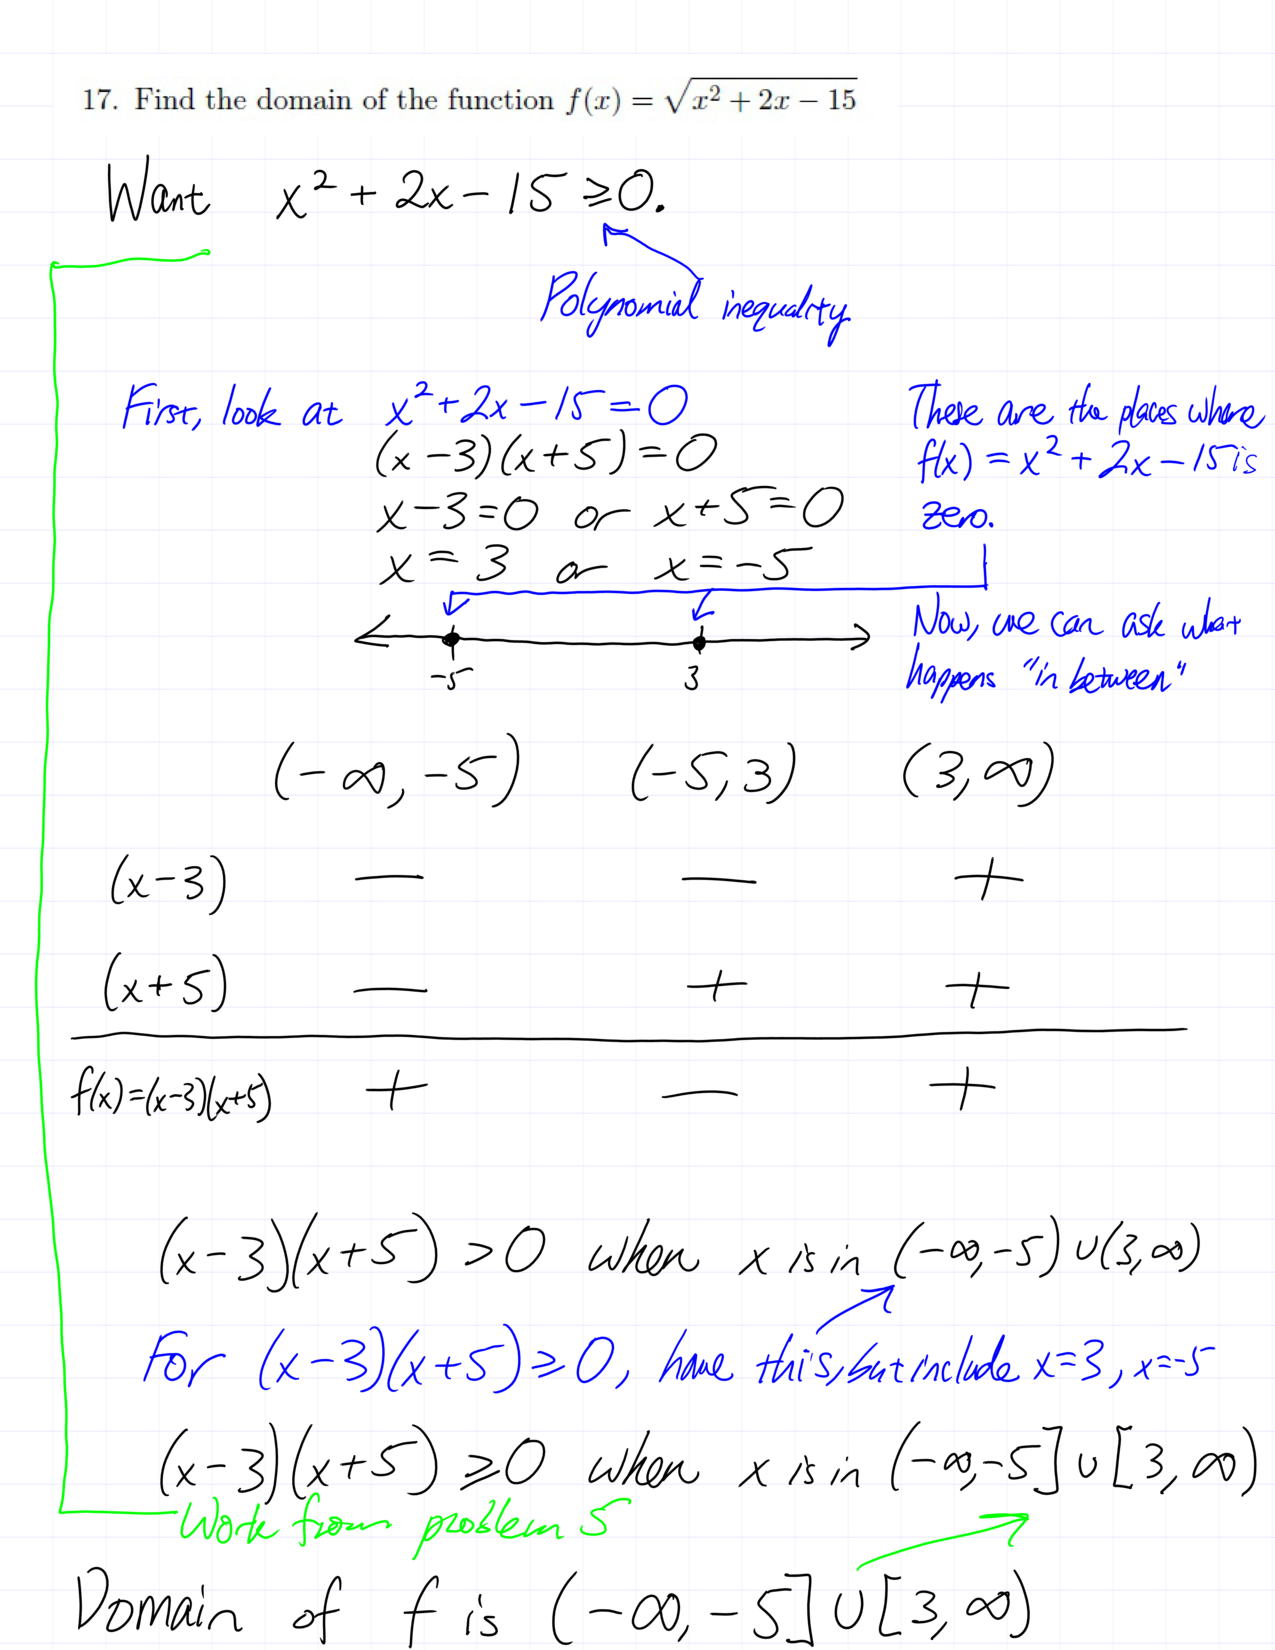 17. Find the domain of the function f(x) = √(x² + 2x − 15)
Want x² + 2x − 15 ⩾ 0.
Polynomial inequality
First, look at x² + 2x − 15 = 0
(x − 3)(x + 5) = 0
x − 3 = 0 or x + 5 = 0
x = 3 or x = −5
These are the places where
f(x) = x² + 2x − 15 is
zero.
−5 3
Now, we can ask what
happens "in between"
(−∞, −5) (−5, 3) (3, ∞)
(x − 3) − − +
(x + 5) − + +
f(x) = (x−3)(x+5) + − +
(x − 3)(x + 5) > 0 when x is in (−∞, −5) ∪ (3, ∞)
For (x − 3)(x + 5) ⩾ 0, have this, but include x = 3, x = −5
(x − 3)(x + 5) ⩾ 0 when x is in (−∞, −5] ∪ [3, ∞)
Work from problem 5
Domain of f is (−∞, −5] ∪ [3, ∞)